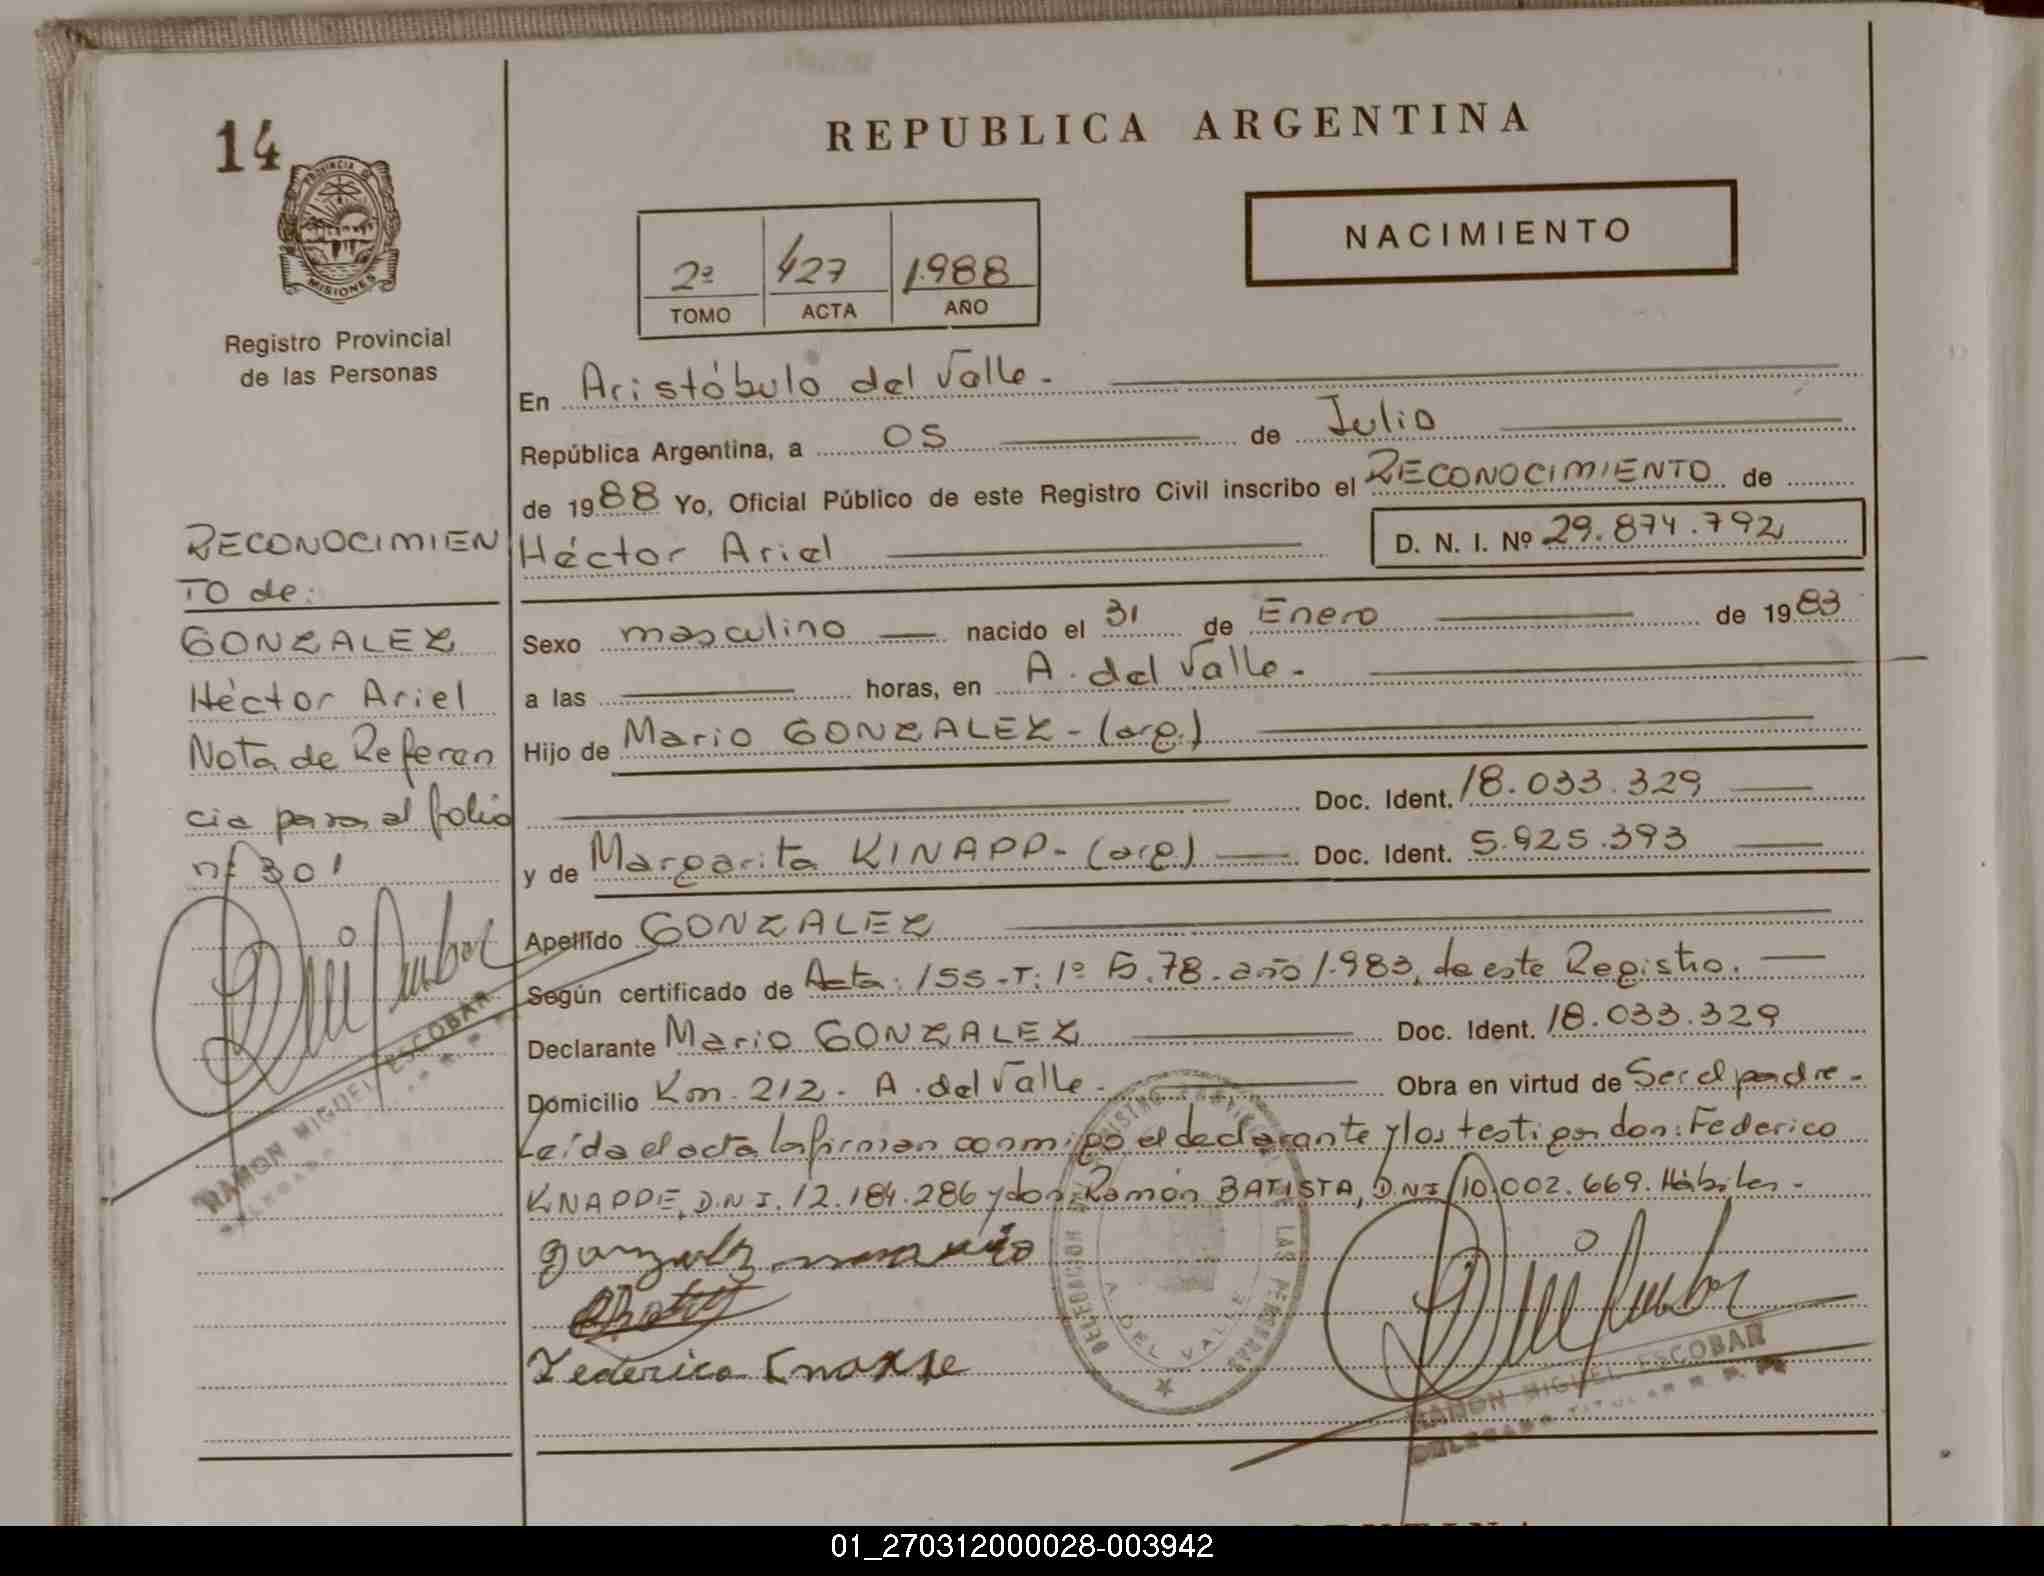 14
PROVINCIA DE
MISIONES
Registro Provincial
de las Personas
REPUBLICA ARGENTINA
NACIMIENTO
2ª 427 1.988
TOMO ACTA AÑO
En Aristóbulo del Valle.-
República Argentina, a 05 de Julio
de 1988 Yo, Oficial Público de este Registro Civil inscribo el RECONOCIMIENTO de
Héctor Ariel D. N. I. Nº 29.874.792
Sexo masculino nacido el 31 de Enero de 1983
a las horas, en A. del Valle.-
Hijo de Mario GONZALEZ - (arg.)
Doc. Ident. 18.033.329
y de Margarita KINAPP - (arg.) Doc. Ident. 5.925.393
Apellido GONZALEZ
Según certificado de Acta: 155-T: 1º F. 78. año 1.983, de este Registro.
Declarante Mario GONZALEZ Doc. Ident. 18.033.329
Domicilio Km. 212 - A. del Valle. Obra en virtud de Ser el padre.-
Leída el acta la firman conmigo el declarante y los testigos don: Federico
KNAPPE, D.N.I. 12.184.286 y don: Ramón BATISTA, D.N.I 10.002.669. Hábiles.-
RECONOCIMIEN
TO de:
GONZALEZ
Héctor Ariel
Nota de Referen
cia pasa al folio
nº 301
RAMON MIGUEL ESCOBAR
gonzalez mario
Federico Knappe
DELEGACION REGISTRO PROVINCIAL DE LAS PERSONAS
A. DEL VALLE
RAMON MIGUEL ESCOBAR
DELEGADO TITULAR
01_270312000028-003942